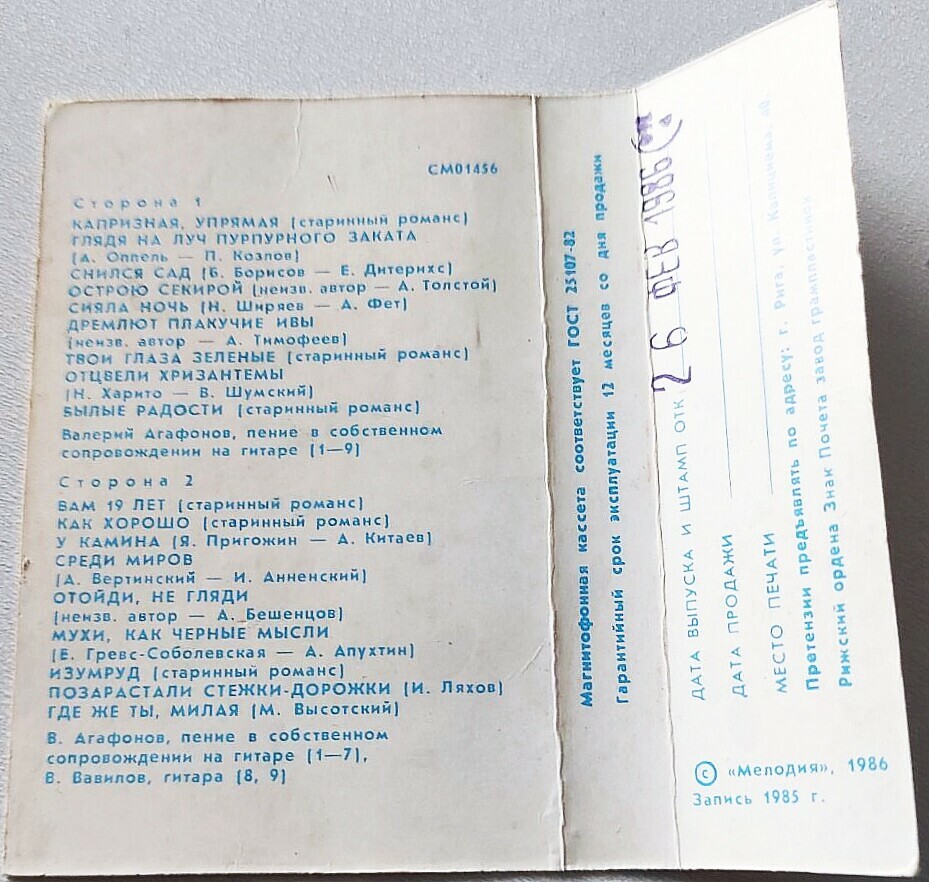 СМ01456
Сторона 1
КАПРИЗНАЯ, УПРЯМАЯ (старинный романс)
ГЛЯДЯ НА ЛУЧ ПУРПУРНОГО ЗАКАТА
(А. Оппель — П. Козлов)
СНИЛСЯ САД (Б. Борисов — Е. Дитерихс)
ОСТРОЮ СЕКИРОЙ (неизв. автор — А. Толстой)
СИЯЛА НОЧЬ (Н. Ширяев — А. Фет)
ДРЕМЛЮТ ПЛАКУЧИЕ ИВЫ
(неизв. автор — А. Тимофеев)
ТВОИ ГЛАЗА ЗЕЛЕНЫЕ (старинный романс)
ОТЦВЕЛИ ХРИЗАНТЕМЫ
(Н. Харито — В. Шумский)
БЫЛЫЕ РАДОСТИ (старинный романс)
Валерий Агафонов, пение в собственном
сопровождении на гитаре (1—9)
Сторона 2
ВАМ 19 ЛЕТ (старинный романс)
КАК ХОРОШО (старинный романс)
У КАМИНА (Я. Пригожин — А. Китаев)
СРЕДИ МИРОВ
(А. Вертинский — И. Анненский)
ОТОЙДИ, НЕ ГЛЯДИ
(неизв. автор — А. Бешенцов)
МУХИ, КАК ЧЕРНЫЕ МЫСЛИ
(Е. Гревс-Соболевская — А. Апухтин)
ИЗУМРУД (старинный романс)
ПОЗАРАСТАЛИ СТЕЖКИ-ДОРОЖКИ (И. Ляхов)
ГДЕ ЖЕ ТЫ, МИЛАЯ (М. Высотский)
В. Агафонов, пение в собственном
сопровождении на гитаре (1—7),
В. Вавилов, гитара (8, 9)
Магнитофонная кассета соответствует ГОСТ 25107-82
Гарантийный срок эксплуатации 12 месяцев со дня продажи
ДАТА ВЫПУСКА И ШТАМП ОТК 26 ФЕВ 1986
ДАТА ПРОДАЖИ
МЕСТО ПЕЧАТИ
Претензии предъявлять по адресу: г. Рига, ул. Калнциема, 40.
Рижский ордена Знак Почета завод грампластинок
© «Мелодия», 1986
Запись 1985 г.